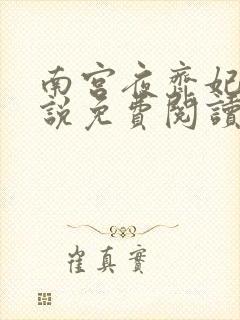 南宫夜齊妃
說免費閱讀
崔真實